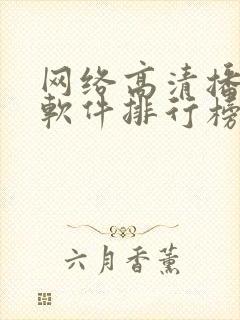 网络高清播
軟件排行榜
六月香薰